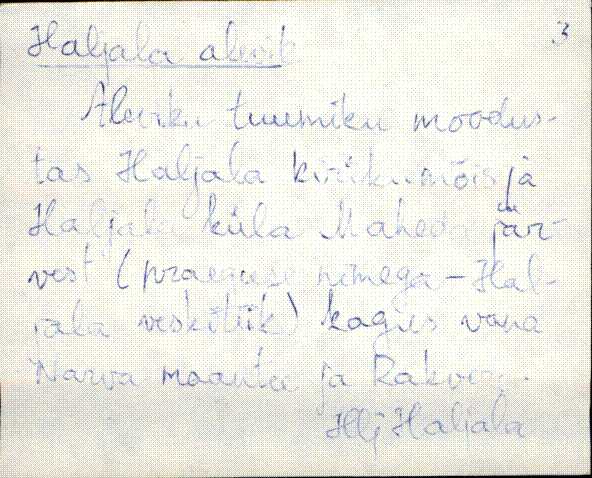 Haljala alevik 3
Aleviku tuumiku moodus-
tas Haljala kirikumõis ja
Haljala küla Maheda jär-
vest (praeguse nimega - Hal-
jala veskitiik) kagus vana
Narva maantee ja Rakvere-
Hlj Haljala